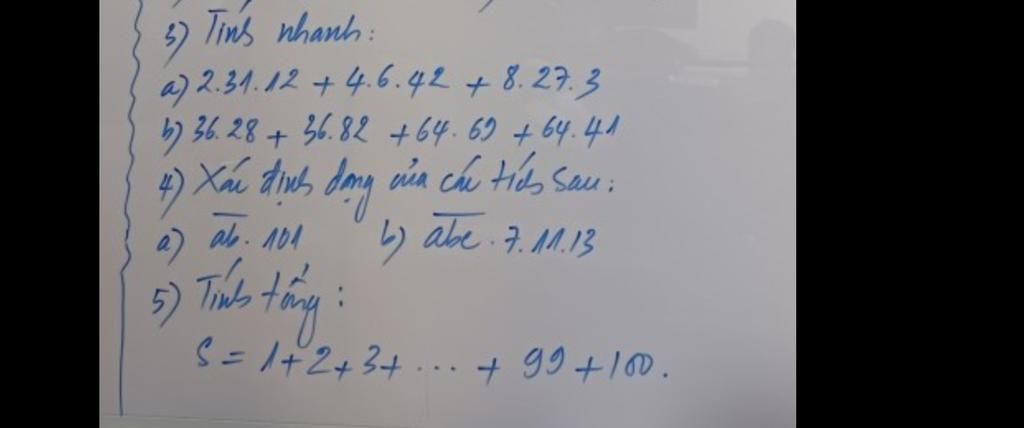 3) Tính nhanh:
a) 2.31.12 + 4.6.42 + 8.27.3
b) 36.28 + 36.82 + 64.69 + 64.41
4) Xác định dạng của các tích sau:
a) a̅b̅. 101 b) a̅b̅c̅. 7.11.13
5) Tính tổng:
S = 1+2+3+ ... + 99 +100.